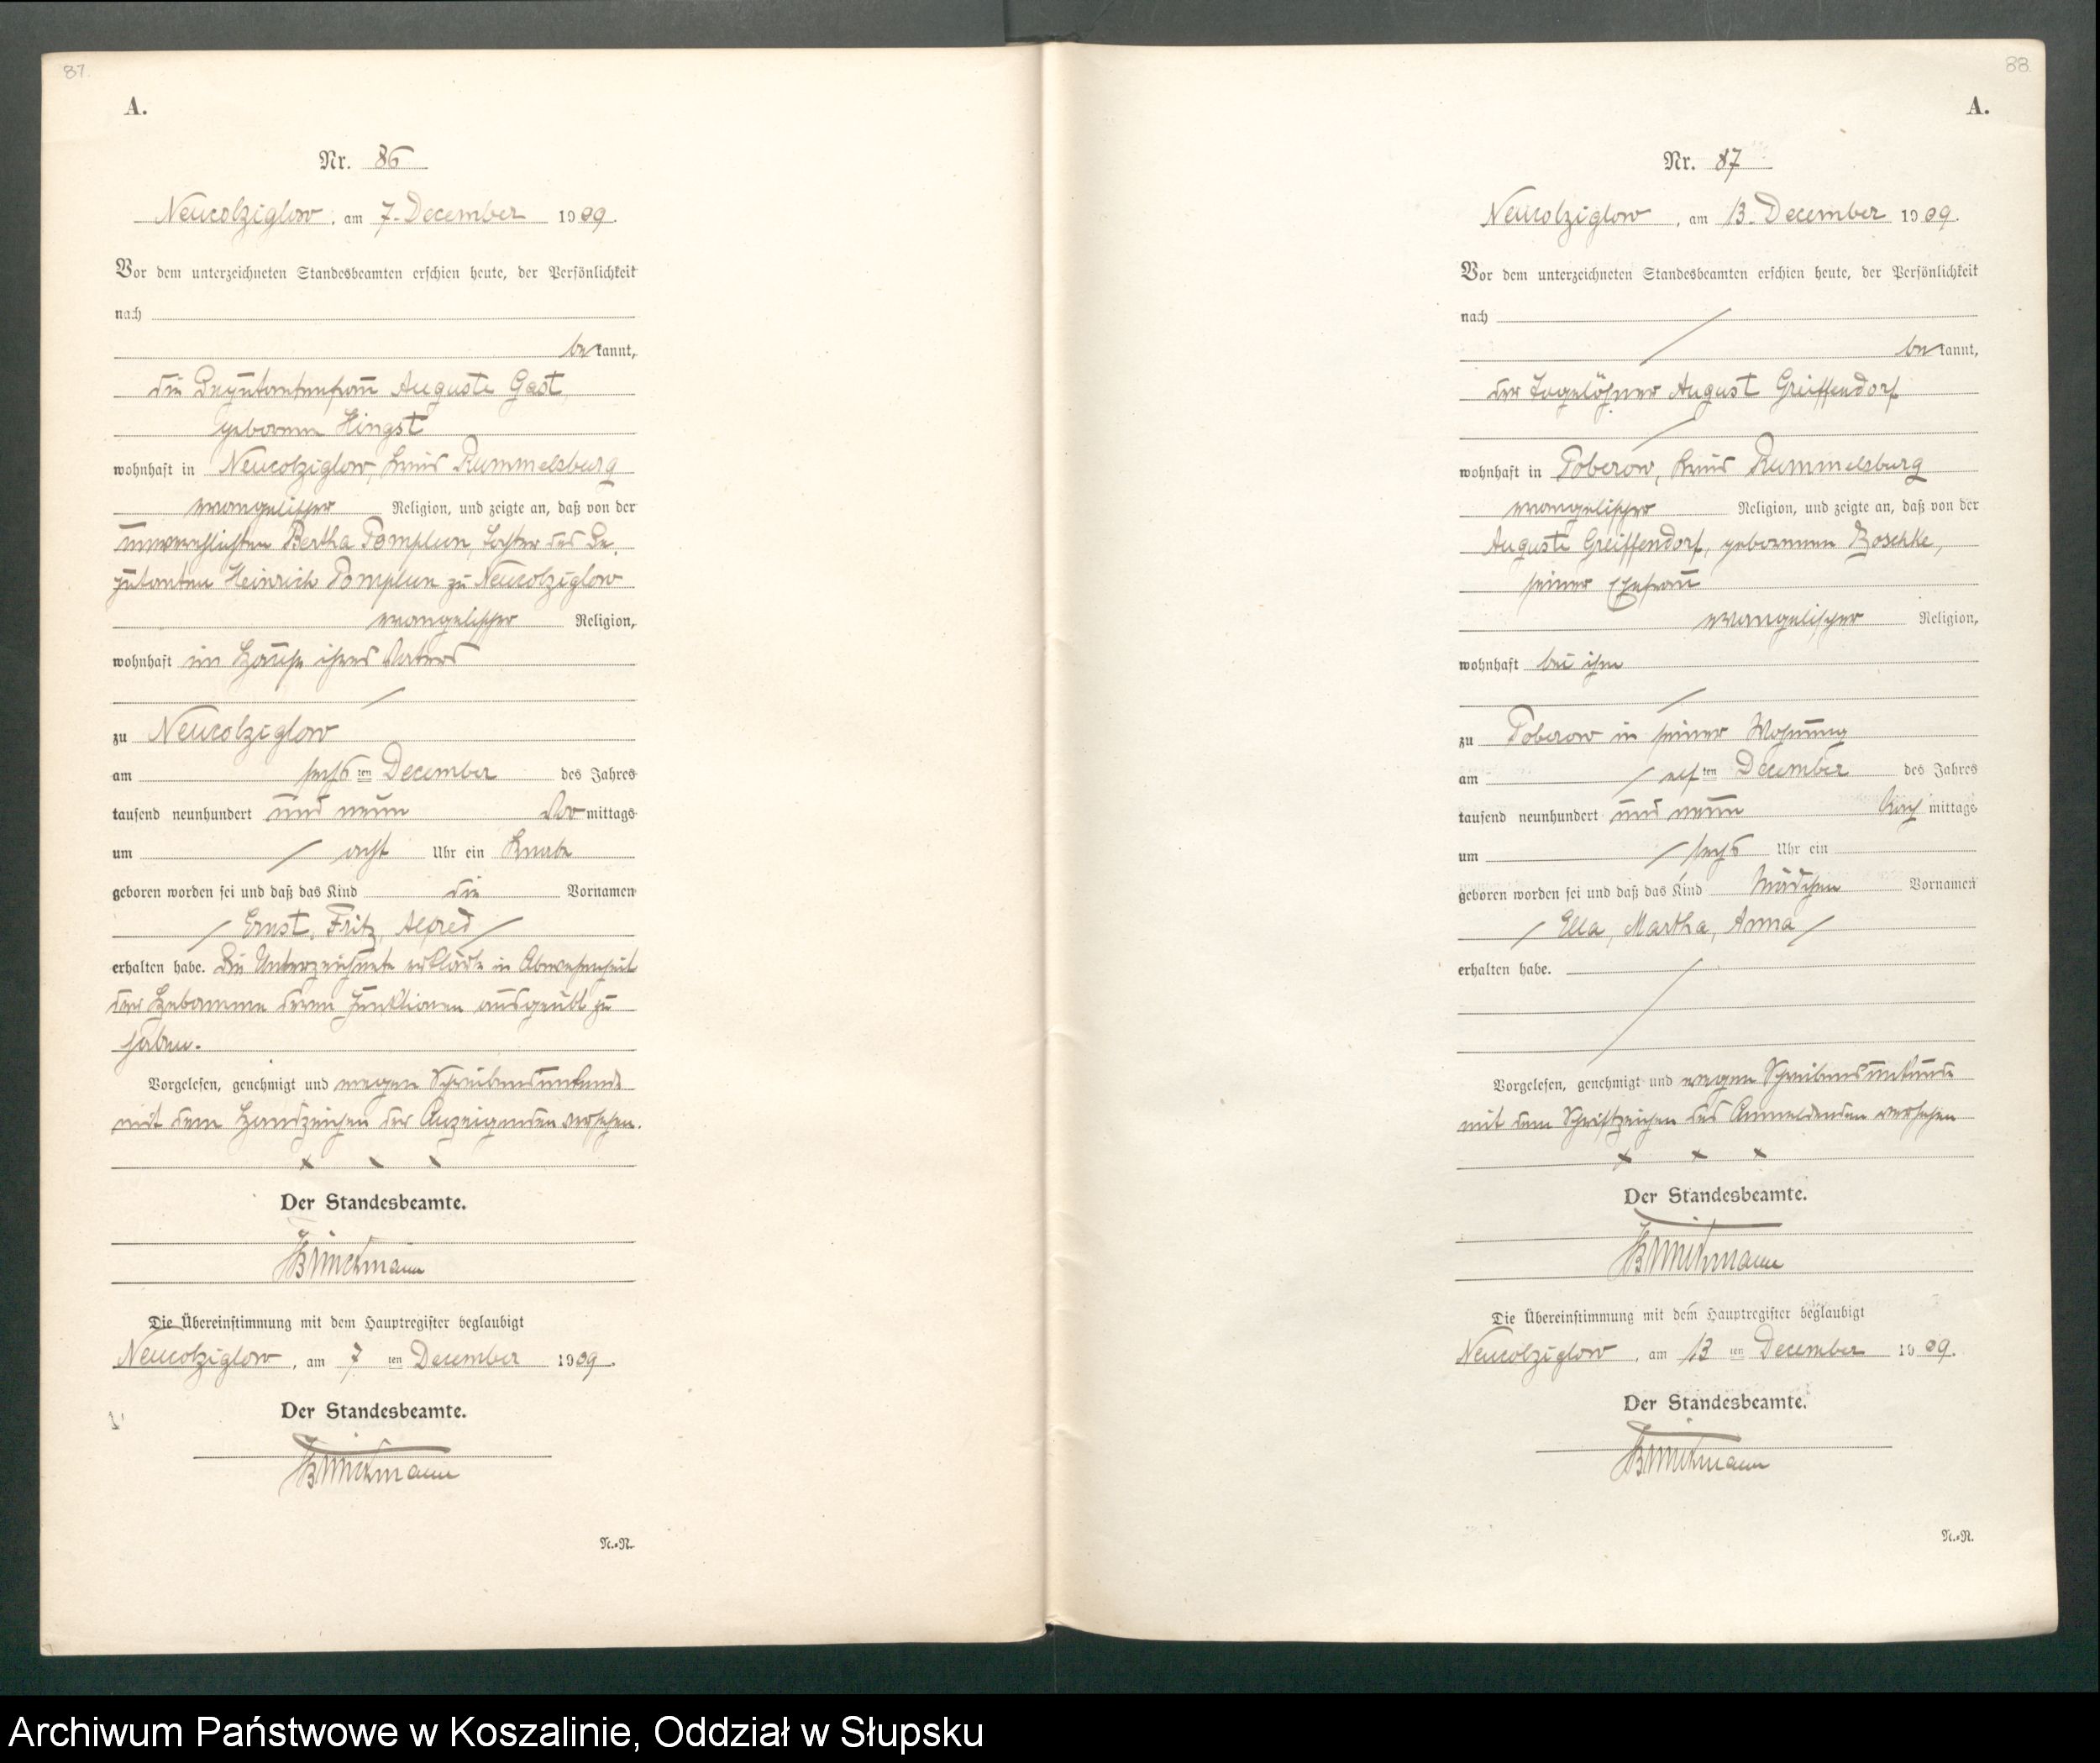 87.
A.
Nr. 86
Neucolziglow, am 7. December 1909.
Vor dem unterzeichneten Standesbeamten erschien heute, der Persönlichkeit
nach
bekannt,
die Deputantenfrau Auguste Gast
geborene Hingst
wohnhaft in Neucolziglow, Kreis Rummelsburg
evangelischer Religion, und zeigte an, daß von der
unverehelichten Bertha Pomplun, Tochter des De-
putanten Heinrich Pomplun zu Neucolziglow
evangelischer Religion,
wohnhaft im Hause ihres Vaters
zu Neucolziglow
am sechsten December des Jahres
tausend neunhundert und neun Vormittags
um acht Uhr ein Knabe
geboren worden sei und daß das Kind die Vornamen
Ernst, Fritz, Alfred
erhalten habe. Die Unterzeichnete erklärte in Abwesenheit
der Hebamme deren Funktionen ausgeübt zu
haben.
Vorgelesen, genehmigt und wegen Schreibensunkunde
mit dem Handzeichen der Anzeigenden versehen.
x x x
Der Standesbeamte.
Die Übereinstimmung mit dem Hauptregister beglaubigt
Neucolziglow, am 7ten December 1909.
Der Standesbeamte.
N.=R.
88.
A.
Nr. 87
Neucolziglow, am 13. December 1909.
Vor dem unterzeichneten Standesbeamten erschien heute, der Persönlichkeit
nach
bekannt,
der Tagelöhner August Greiffendorf
wohnhaft in Poberow, Kreis Rummelsburg
evangelischer Religion, und zeigte an, daß von der
Auguste Greiffendorf, geborenen Zoschke,
seiner Ehefrau
evangelischer Religion,
wohnhaft bei ihm
zu Poberow in seiner Wohnung
am elften December des Jahres
tausend neunhundert und neun Nachmittags
um sechs Uhr ein
geboren worden sei und daß das Kind Mädchen Vornamen
Ella, Martha, Anna
erhalten habe.
Vorgelesen, genehmigt und wegen Schreibensunkunde
mit dem Schriftzeichen des Anmeldenden versehen
x x x
Der Standesbeamte.
Die Übereinstimmung mit dem Hauptregister beglaubigt
Neucolziglow, am 13ten December 1909.
Der Standesbeamte.
N.=R.
Archiwum Państwowe w Koszalinie, Oddział w Słupsku